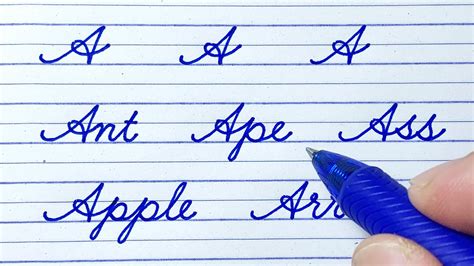 A A A
Ant Ape Ass
Apple